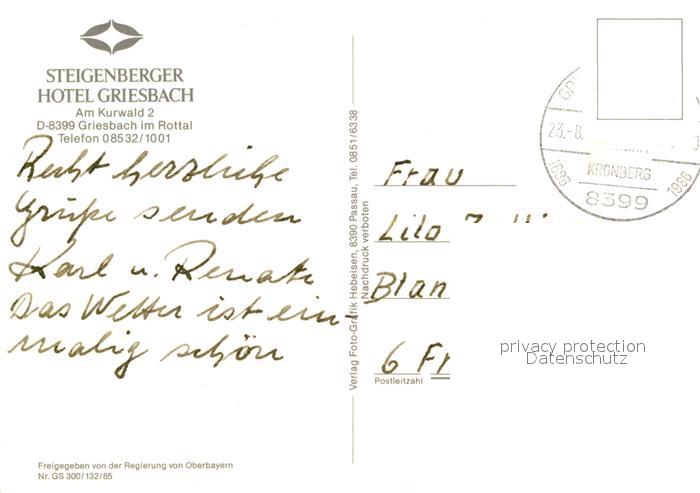 STEIGENBERGER
HOTEL GRIESBACH
Am Kurwald 2
D-8399 Griesbach im Rottal
Telefon 08532/1001
Recht herzliche
Grüße senden
Karl u. Renate
Das Wetter ist ein-
malig schön
Freigegeben von der Regierung von Oberbayern
Nr. GS 300/132/85
Verlag Foto-Grafik Hebeisen, 8390 Passau, Tel. 0851/6338
Nachdruck verboten
23.-8.
KRONBERG
1686 1986
8399
Frau
Lilo
Blan
6 Fr
Postleitzahl
privacy protection
Datenschutz